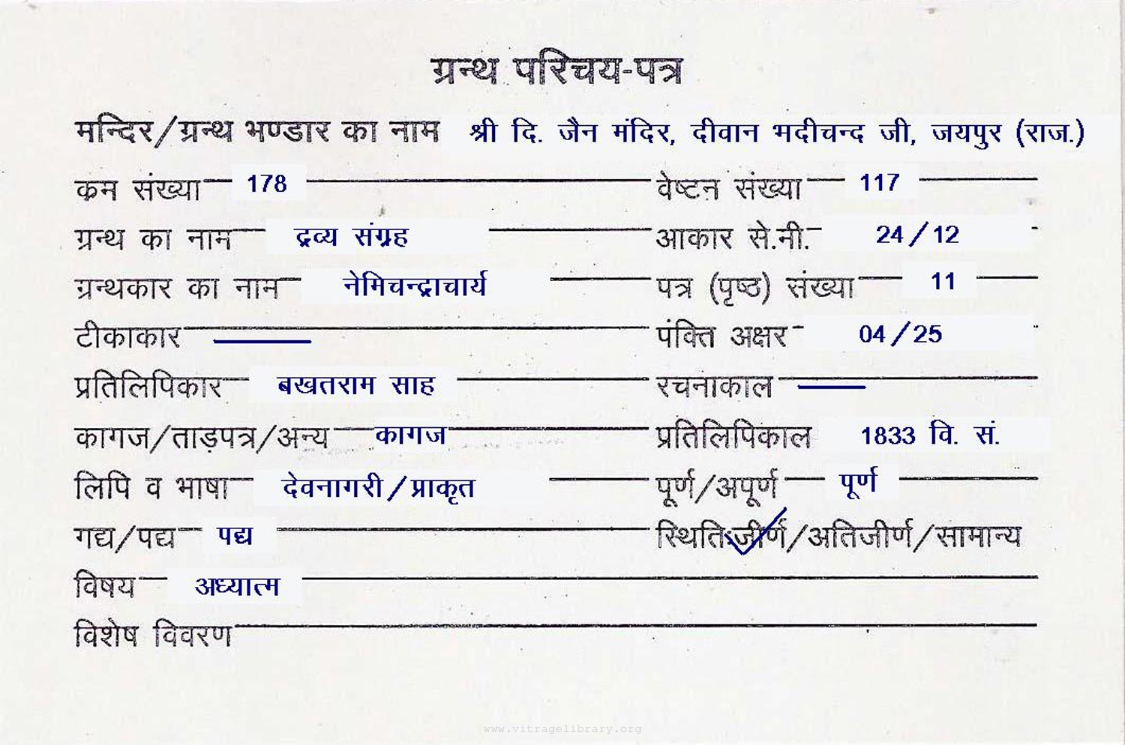 ग्रन्थ परिचय-पत्र
मन्दिर/ग्रन्थ भण्डार का नाम श्री दि. जैन मंदिर, दीवान भदीचन्द जी, जयपुर (राज.)
क्रम संख्या 178 वेष्टन संख्या 117
ग्रन्थ का नाम द्रव्य संग्रह आकार से.मी. 24/12
ग्रन्थकार का नाम नेमिचन्द्राचार्य पत्र (पृष्ठ) संख्या 11
टीकाकार पंक्ति अक्षर 04/25
प्रतिलिपिकार बखतराम साह रचनाकाल
कागज/ताड़पत्र/अन्य कागज प्रतिलिपिकाल 1833 वि. सं.
लिपि व भाषा देवनागरी/प्राकृत पूर्ण/अपूर्ण पूर्ण
गद्य/पद्य पद्य स्थिति:जीर्ण/अतिजीर्ण/सामान्य
विषय अध्यात्म
विशेष विवरण
www.vitragelibrary.org